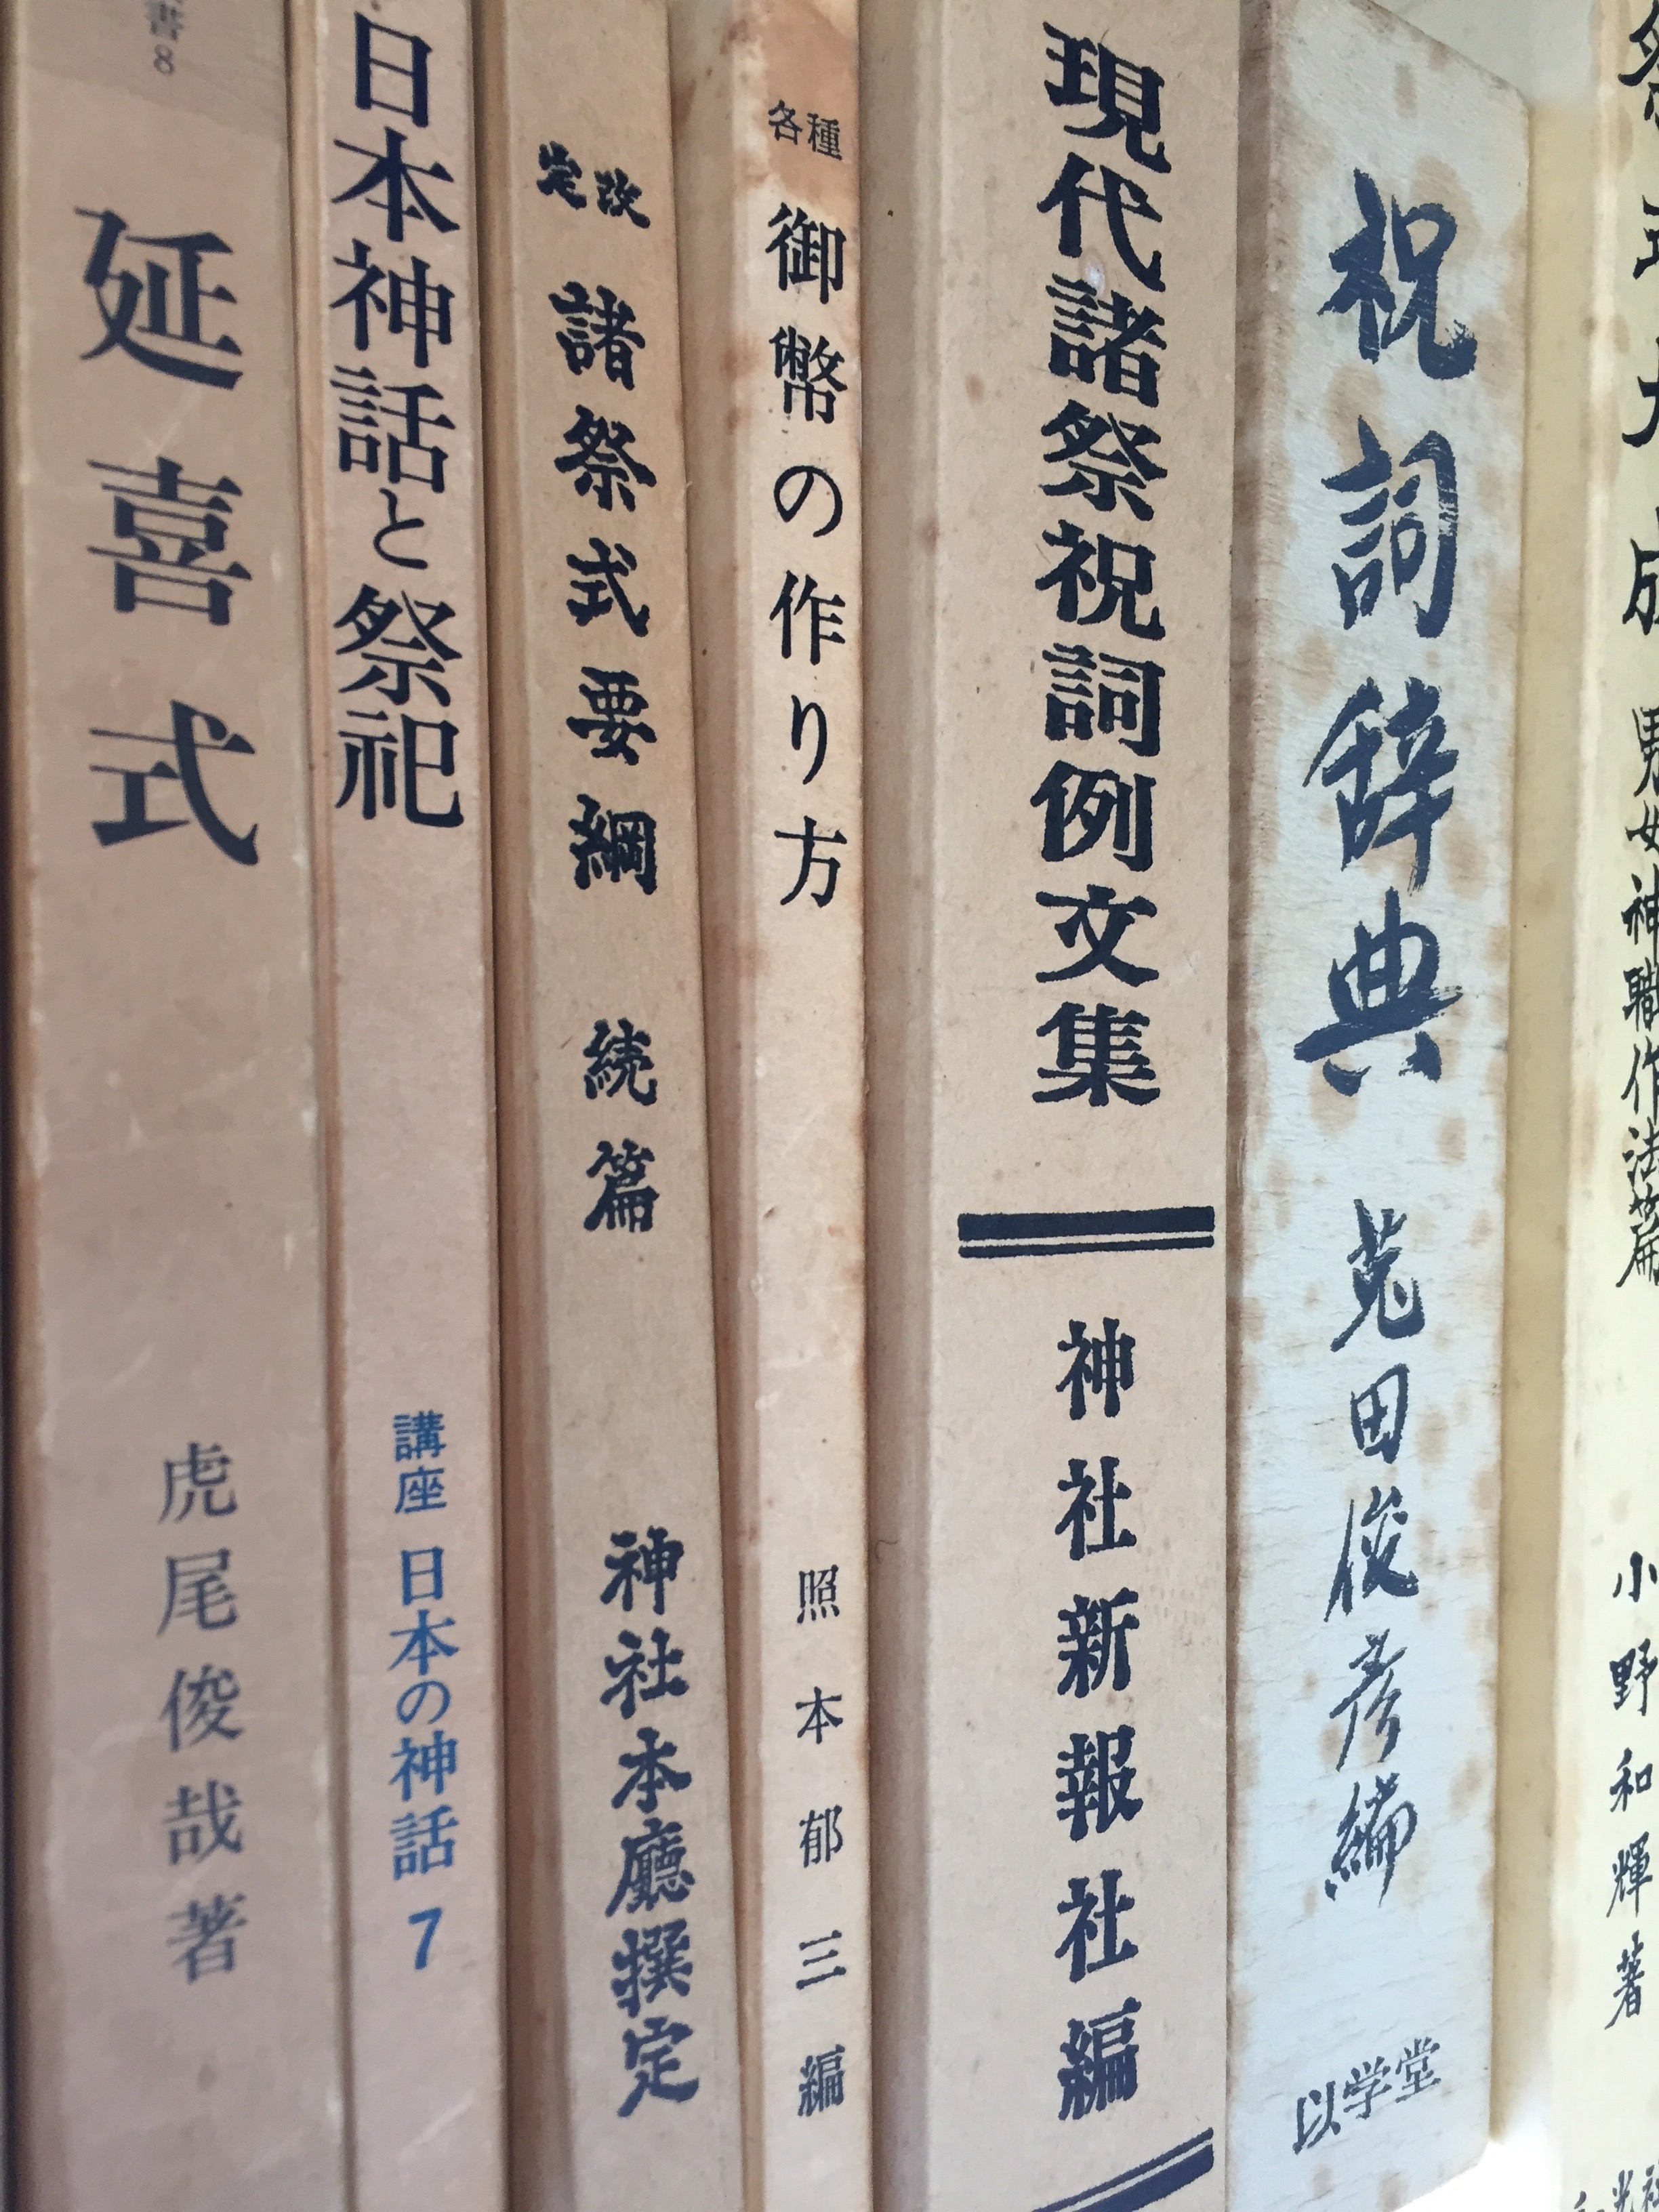 書8
延喜式
虎尾俊哉著
日本神話と祭祀
講座 日本の神話 7
改定
諸祭式要綱 続篇
神社本廳撰定
各種
御幣の作り方
照本郁三編
現代諸祭祝詞例文集
神社新報社編
祝詞辞典
莵田俊彦編
以学堂
祭式大成 男女神職作法篇
小野和輝著